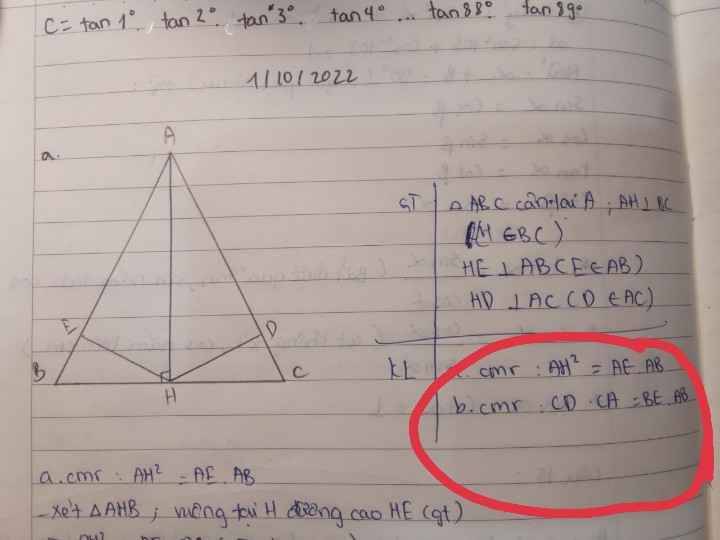 C = tan 1° . tan 2° . tan 3° . tan 4° ... tan 88° . tan 89°
1/10/2022
a.
A
E
D
B
C
H
GT
△ABC cân tại A ; AH ⊥ BC
(H ∈ BC)
HE ⊥ AB (E ∈ AB)
HD ⊥ AC (D ∈ AC)
KL
. cmr : AH² = AE . AB
b. cmr : CD . CA = BE . AB
a. cmr : AH² = AE . AB
- Xét △AHB ; vuông tại H đường cao HE (gt)